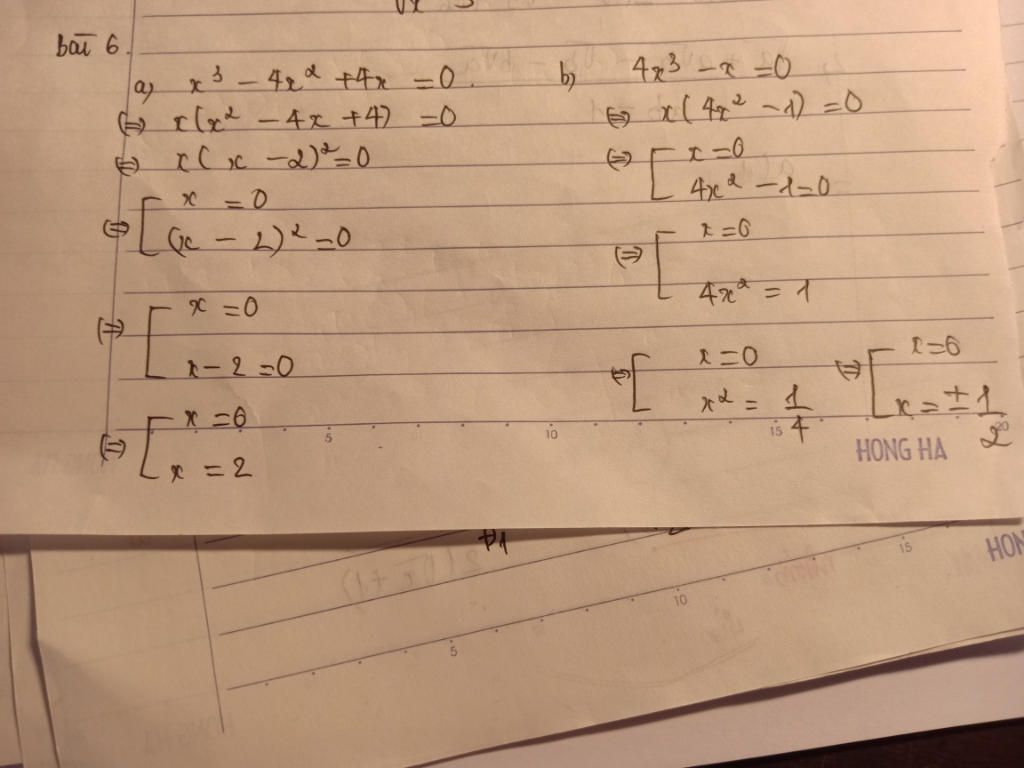 bài 6.
a) x³ - 4x² + 4x = 0.
⇔ x(x² - 4x + 4) = 0
⇔ x(x - 2)² = 0
⇔ [ x = 0
(x - 2)² = 0
⇔ [ x = 0
x - 2 = 0
⇔ [ x = 0
x = 2
b) 4x³ - x = 0
⇔ x(4x² - 1) = 0
⇔ [ x = 0
4x² - 1 = 0
⇔ [ x = 0
4x² = 1
⇔ [ x = 0
x² = 1/4
⇔ [ x = 0
x = ± 1/2
5 10 15 20
HONG HA
+1
5 10 15
HON